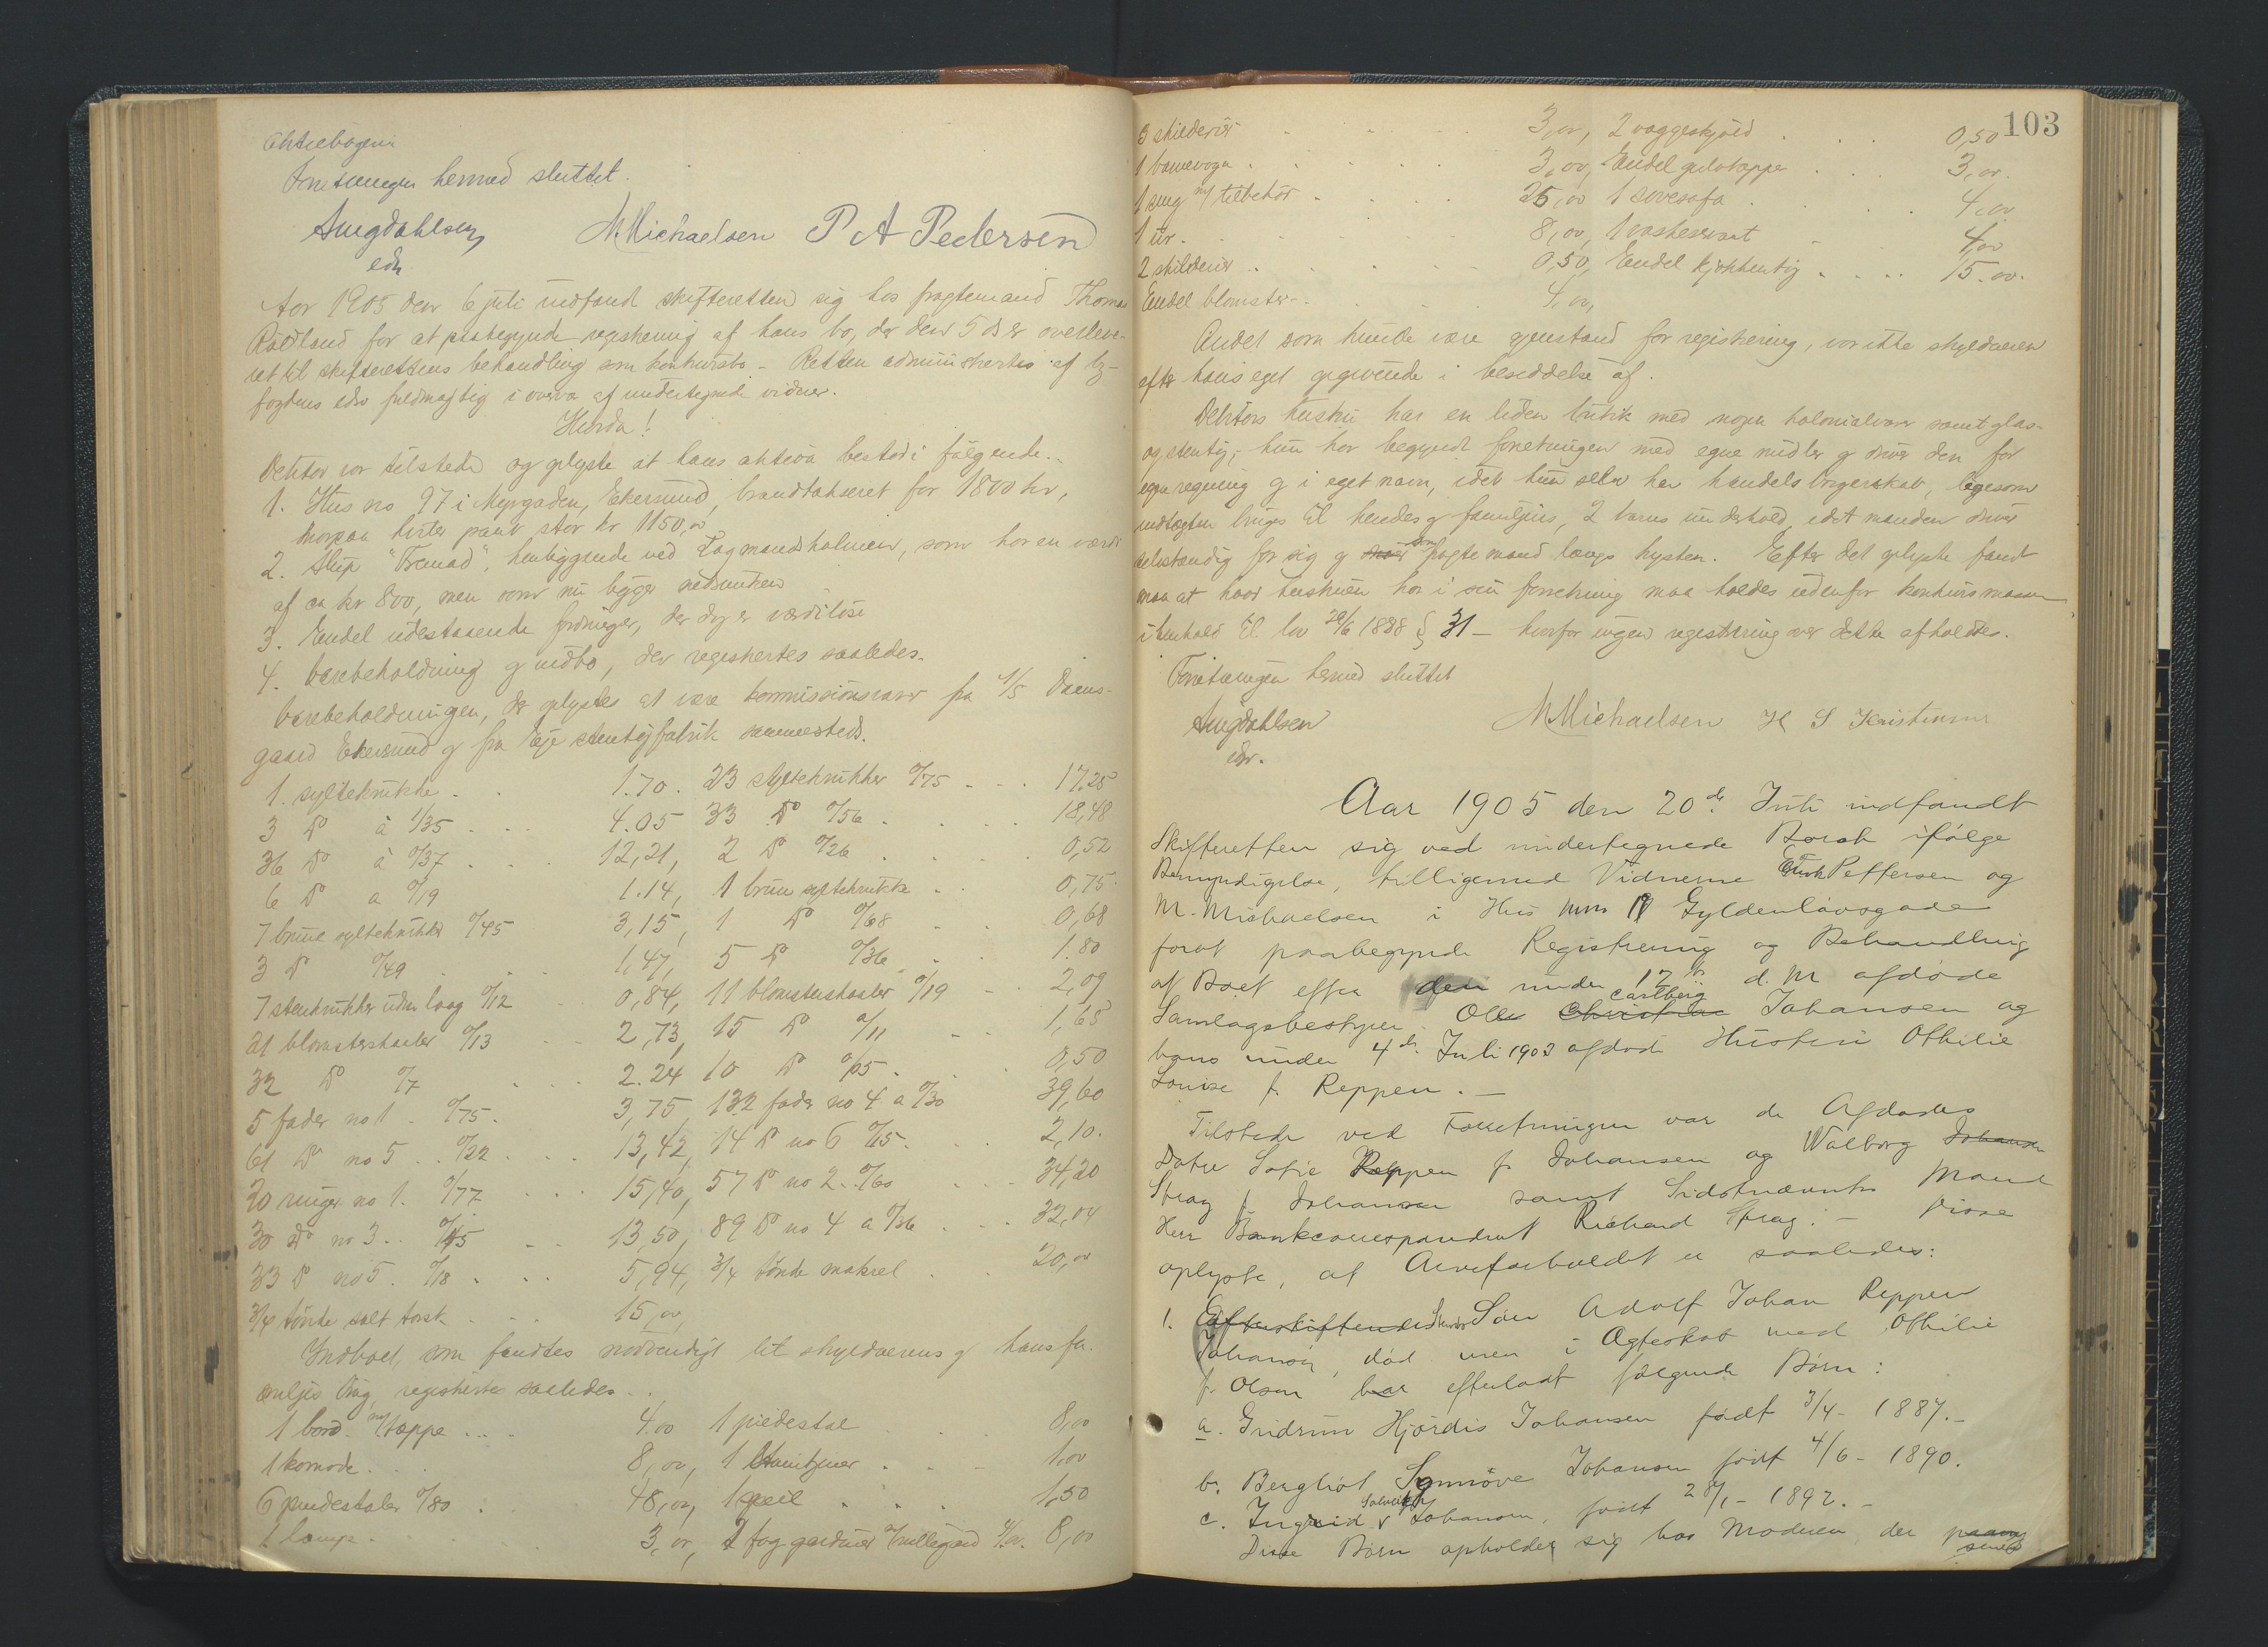 aktiebogen
Forretningen hermed sluttet.
Amgdahlsen M. Michaelsen P A Pedersen
eds.
Aar 1905 den 6 juli indfandt skifteretten sig hos fragtemand Thomas
Rødland for at paabegynde registrering af hans bo, der den 5 ds er overleve-
ret til skifterettens behandling som konkursbo – Retten administrertes af by-
fogdens eds fuldmægtig i overvær af undertegnede vidner.
Hvorda!
Debitor var tilstede og oplyste at hans aktiva bestod i følgende.
1. Hus no 97 i Nygaden, Ekersund, brandtakseret for 1800 kr,
hvorpaa hviler pant stor kr 1150,00
2. Slup "Fremad", henliggende ved Lagmandsholmen, som har en værdi
af ca kr 800, men som nu ligger nedsunken
3. Endel udestaaende fordringer, der dog er værdiløse
4. Varebeholdning og indbo, der registrertes saaledes.
Varebeholdningen, der oplystes at være kommissionsvarer fra A/S Dams-
gaard Ekersund og fra Eje stentøjfabrik sammesteds.
1. syltekrukke . 1.70. 23 syltekrukker 0/75 . . . 17.25
3 Do à 1/35 . . . 4.05 33 Do 0/56 . . . 18,48
36 Do à 0/37 . . . 12,21, 2 Do 0/26 . . . 0,52
6 Do a 0/19 1.14, 1 brun syltekrukke . . 0,75.
7 brune syltekrukker 0/45 3,15, 1 Do 0/68 . . 0,68
3 Do 0/49 . . . 1,47, 5 Do 0/36 . . 1.80
7 stenkrukker uden laag 0/12 . . 0,84, 11 blomsterskaaler 0/19 . . 2,09
21 blomsterskaaler 0/13 . . 2,73, 15 Do 0/11 . 1,65
32 Do 0/7 . . . 2.24 10 Do 0/05 . . 0,50
5 fader no 1. 0/75. 3,75, 132 fader no 4 a 0/30 39,60
61 Do no 5 . . 0/22 . . . 13,42, 14 Do no 6 0/15. . . 2,10.
20 ringer no 1. 0/77 . . . 15,40, 57 Do no 2. 0/60 . . . 34,20
30 Do no 3. . 0/45 . . 13,50, 89 Do no 4 a 0/36 . . . 32,04
33 Do no 5. 0/18 . . . 5,94, 3/4 tønde makrel . . 20,00
3/4 tønde salt torsk . . . 15,00,
Indboet, som fandtes nødvendigt til skyldnerens og hans fa-
miljes brug, registrertes saaledes . .
1 bord m/ tæppe . . . 4.00 1 piedestal . . . 8,00
1 komode . . . 8,00, 1 . . . 1,00
6 0/80 . 48,00, 1 speil . . . 1,50
1 lampe . . . 3,00, 2 fag gardiner 4/00. 8,00
103
3 skilderier . . . 3,00, 2 væggeskjold . . . 0,50
1 barnevogn . . . 3,00, Endel gulvtæpper . . . 3,00.
1 seng m/ tilbehør . . . 25,00 1 sovesofa . . . 4,00
1 ur . . . 8,00, 1 vaskeservant . . 4,00
2 skilderier . . . 0,50, Endel kjøkkentøj . . . 15.00.
Endel blomster . . . 4,00,
Andet som kunde være gjenstand for registrering, var ikke skyldneren
efter hans eget opgivende i besiddelse af.
Debitors hustru har en liden butik med nogen kolonialvarer samt glas-
og stentøj, - hun har begyndt forretningen med egne midler og driver den for
egen regning og i eget navn, idet hun selv har handelsborgerskab, ligesom
indtægten bruges til hendes og familjens, 2 børns underhold, idet manden driver
selvstændig for sig og som fragtemand langs kysten. Efter det oplyste fandt
man at hvad hustruen har i sin forretning maa holdes udenfor konkursmassen
i henhold til lov 29/6 1888 § 31 – hvorfor ingen registrering over dette afholdtes.
Forretningen hermed sluttet
Amgdahlsen M. Michaelsen H. S. Kristensen
eds.
Aar 1905 den 20de Juli indfandt
Skifteretten sig ved undertegnede Borch ifølge
Bemyndigelse, tilligemed Vidnerne Pettersen og
M. Michaelsen i Hus No Gyldenløvsgaden
forat paabegynde Registrering og Behandling
af Boet efter den under 17de d. M afdøde
Samlagsbestyrer Olle Christian Carlberg Johansen og
hans under 4de Juli 1903 afdøde Hustru Othilie
Lovise f. Reppen. –
Tilstede ved Forretningen var de Afdødes
Døtre Sofie Reppen f. Johansen og Walborg Johansen
Stray f. Johansen samt Sidstnævntes Mand
Herr Bankcorrespondent Richard Stray. – Disse
oplyste, at Arveforholdet er saaledes:
1. Efterskiftendes Søn Adolf Johan Reppen
Johansen, død men i Ægteskab med Othilie
f. Olsen har efterladt følgende Børn:
a. Gudrun Hjørdis Johansen født 3/4 - 1887. –
b. Bergliot Synnøve Johansen født 4/6 - 1890.
c. Ingrid Solveig Johansen, født 28/1 - 1892. –
Disse Børn opholder sig hos Moderen der